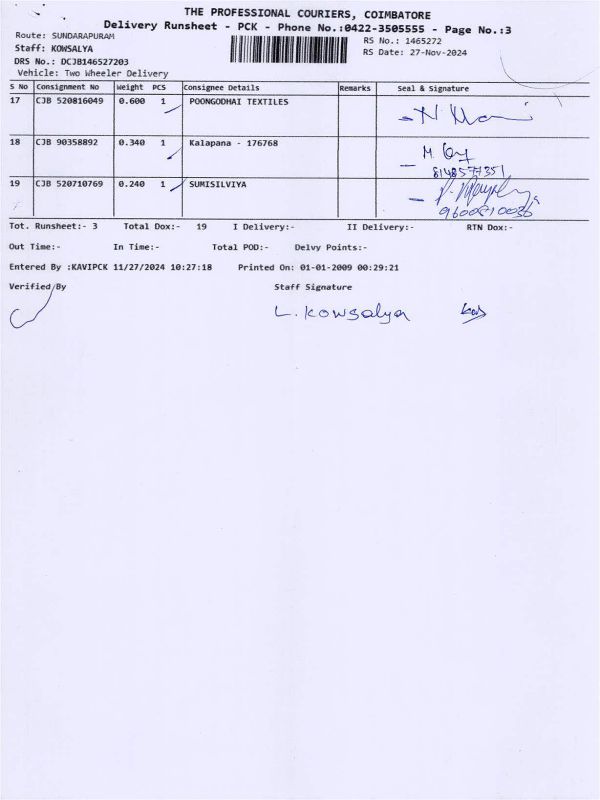 THE PROFESSIONAL COURIERS, COIMBATORE
Delivery Runsheet - PCK - Phone No.:0422-3505555 - Page No.:3
Route: SUNDARAPURAM
RS No.: 1465272
Staff: KOWSALYA
RS Date: 27-Nov-2024
DRS No.: DCJB146527203
Vehicle: Two Wheeler Delivery
S No Consignment No Weight PCS Consignee Details Remarks Seal & Signature
17 CJB 520816049 0.600 1 POONGODHAI TEXTILES
18 CJB 90358892 0.340 1 Kalapana - 176768
8148577351
19 CJB 520710769 0.240 1 SUMISILVIYA
Tot. Runsheet:- 3 Total Dox:- 19 I Delivery:- II Delivery:- RTN Dox:-
Out Time:- In Time:- Total POD:- Delvy Points:-
Entered By :KAVIPCK 11/27/2024 10:27:18 Printed On: 01-01-2009 00:29:21
Verified By Staff Signature
L. Kowsalya